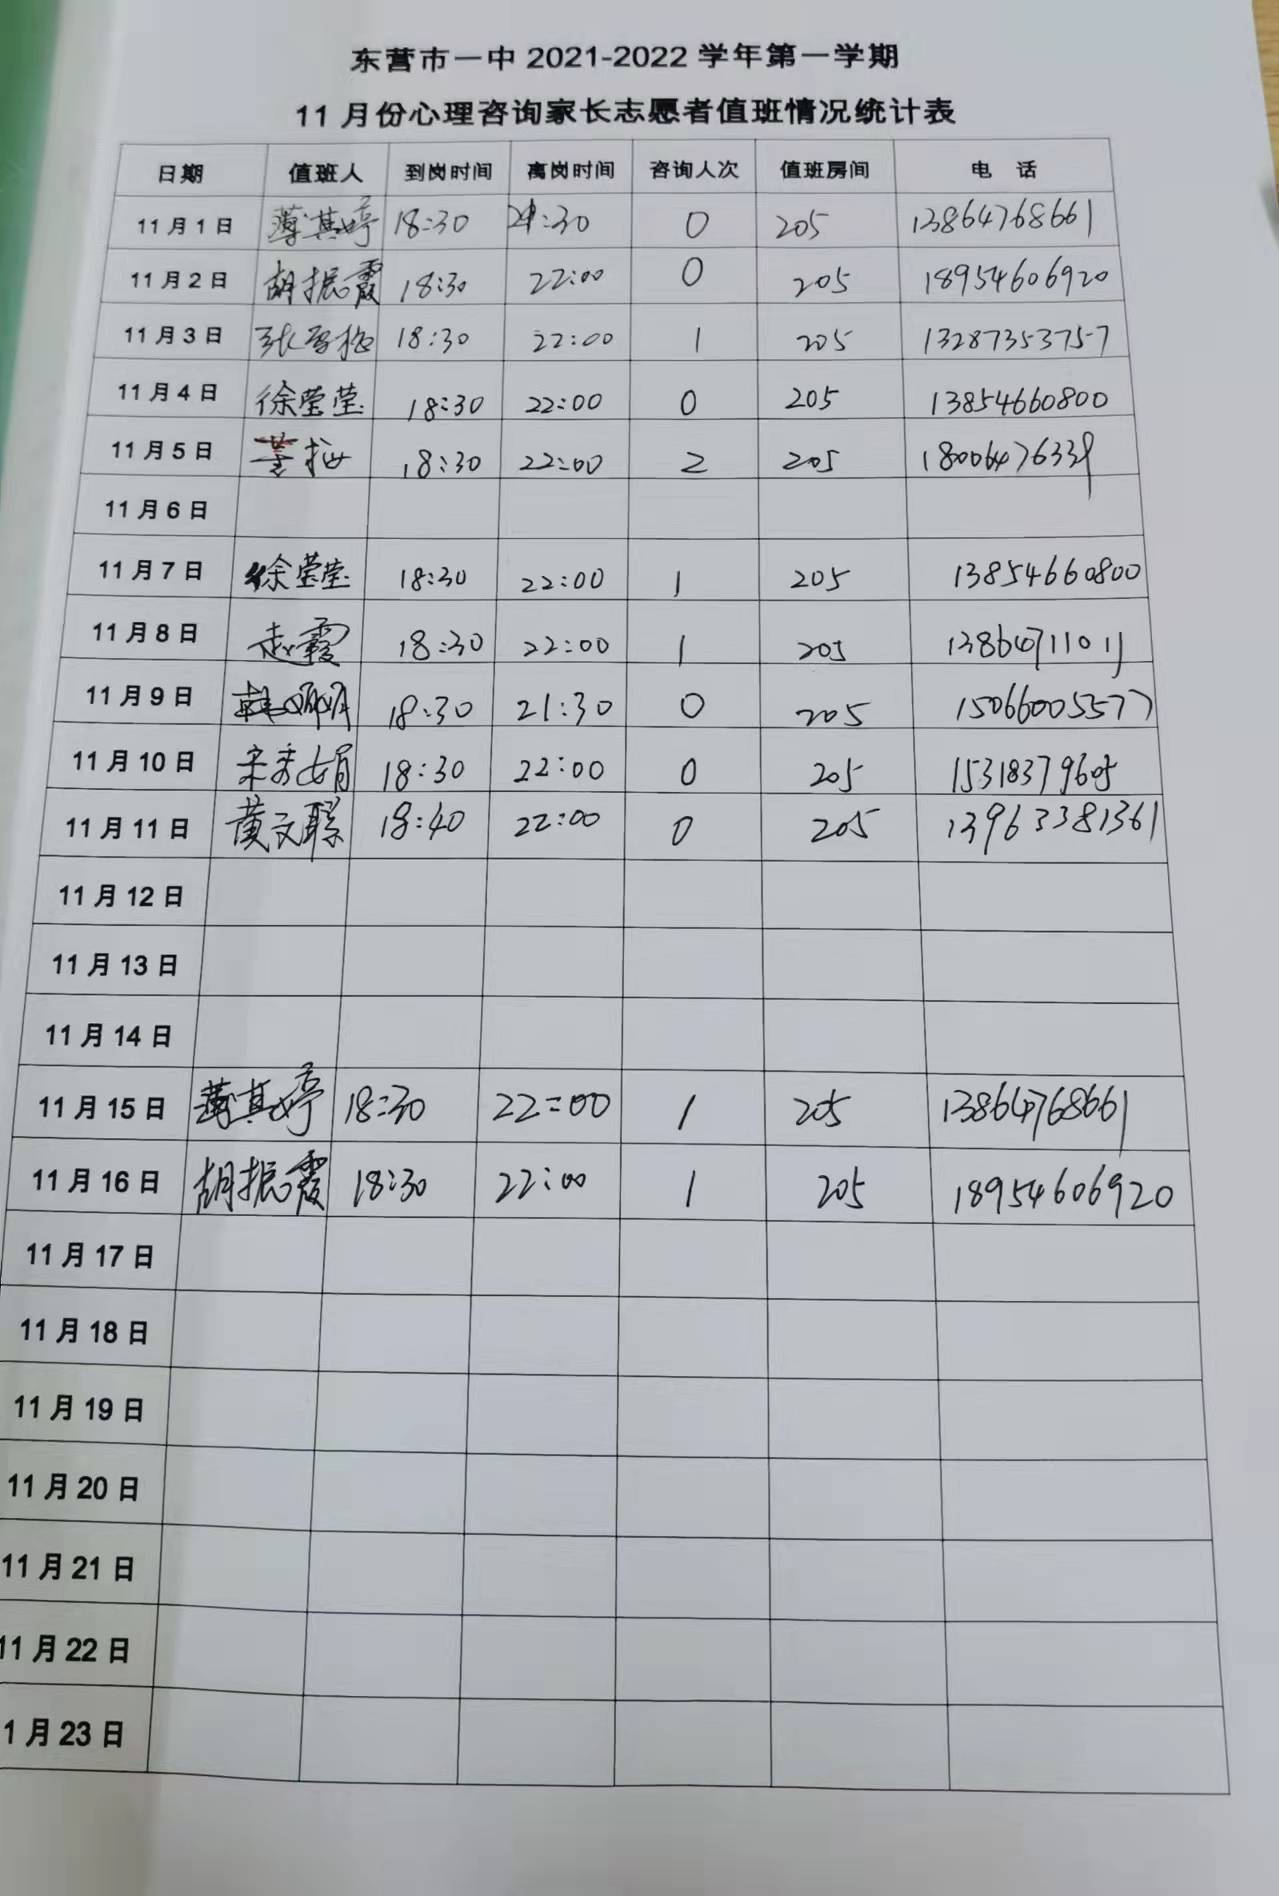 东营市一中 2021-2022 学年第一学期
11 月份心理咨询家长志愿者值班情况统计表
日期 值班人 到岗时间 离岗时间 咨询人次 值班房间 电 话
11月1日 薄其婷 18:30 21:30 0 205 13864768661
11月2日 胡振霞 18:30 22:00 0 205 18954606920
11月3日 张雪梅 18:30 22:00 1 205 13287353757
11月4日 徐莹莹 18:30 22:00 0 205 13854660800
11月5日 18:30 22:00 2 205 18006476339
11月6日
11月7日 徐莹莹 18:30 22:00 1 205 13854660800
11月8日 赵霞 18:30 22:00 1 205 13864711011
11月9日 18:30 21:30 0 205 15066005577
11月10日 宋秀娟 18:30 22:00 0 205 15318379605
11月11日 黄文聪 18:40 22:00 0 205 13963381361
11月12日
11月13日
11月14日
11月15日 薄其婷 18:30 22:00 1 205 13864768661
11月16日 胡振霞 18:30 22:00 1 205 18954606920
11月17日
11月18日
11月19日
11月20日
11月21日
11月22日
1月23日